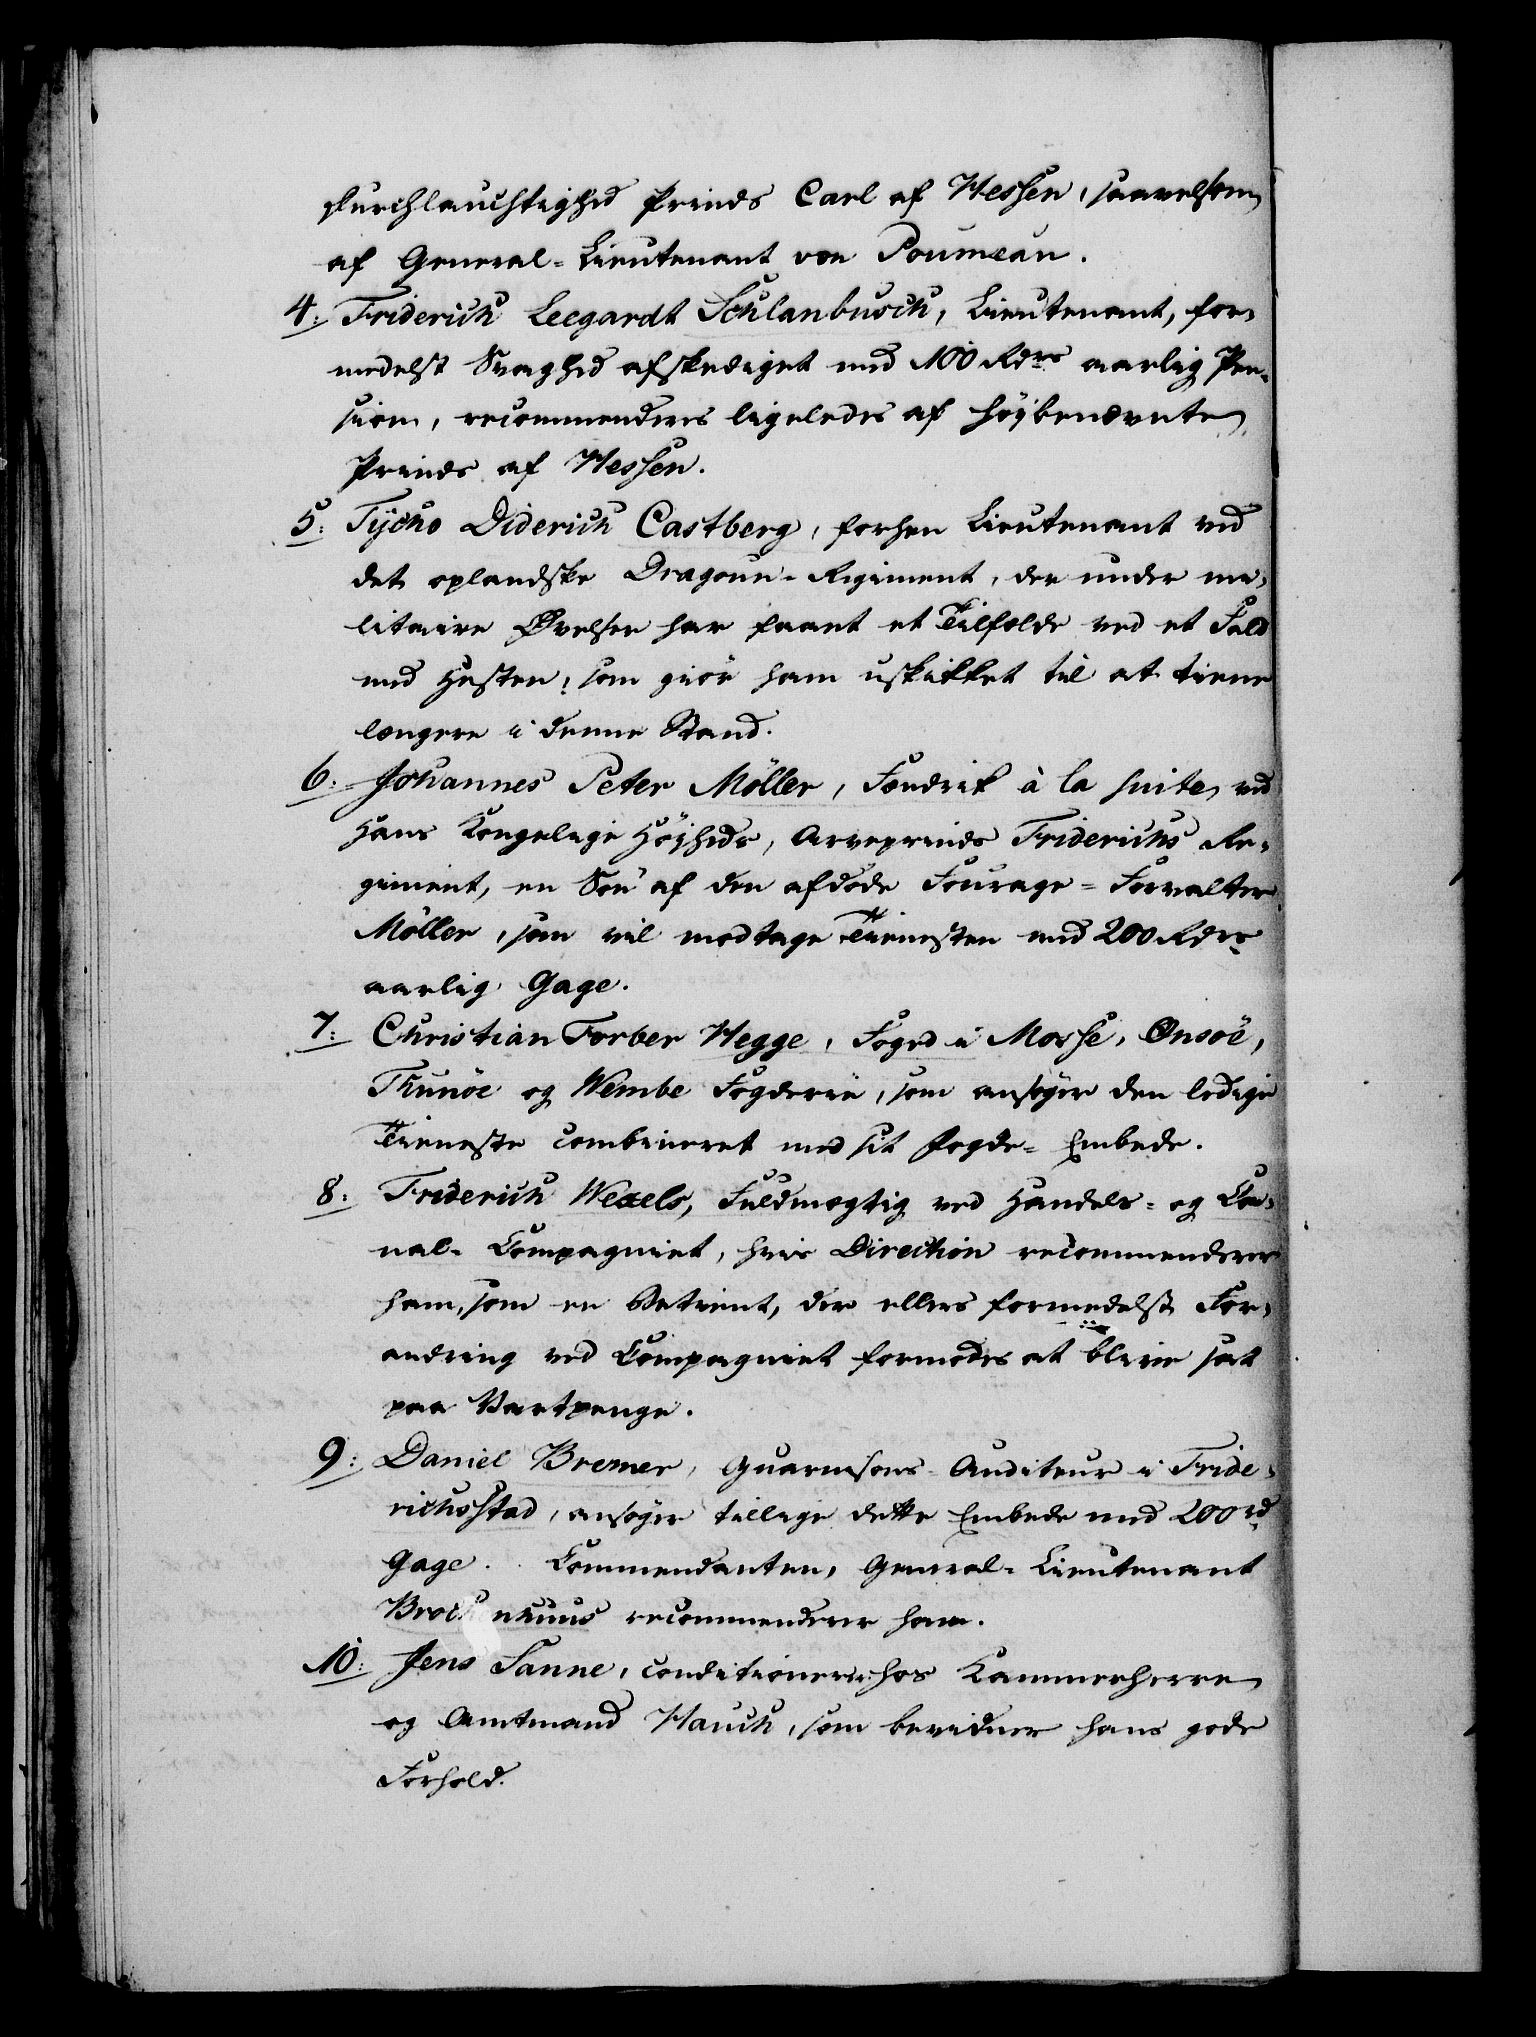 Durchlauchtighed Prinds Carl af Hessen, saavelsom
af General-Lieutenant von Poumeau.
4. Friderich Leegardt Schlanbusch, Lieutenant, for-
medelst Svaghed afskediget med 100 Rdrs aarlig Pen-
sion, recommenderes ligeledes af høybenævnte
Prinds af Hessen.
5. Tÿcho Diderich Castberg, forhen Lieutenant ved
det oplandske Dragoun-Regiment, der under mi-
litaire Øvelser har faaet et Tilfælde ved et Fald
med Hesten, som giör ham uskikket til at tiene
længere i denne Stand.
6. Johannes Peter Möller, Fændrik à la suite ved
Hans Kongelige Höjheds, Arveprinds Friderichs Re-
giment, en Sön af den afdöde Fourage-Forvalter
Möller, som vil modtage Tienesten med 200 Rdrs
aarlig Gage.
7. Christian Torber Hegge, Foged i Mosse, Onsöe,
Thunöe og Wembe Fogderie, som ansøger den ledige
Tieneste combineret med sit Fogde-Embede.
8. Friderich Wexels, Fuldmægtig ved Handels- og Ca-
nal-Compagniet, hvis Direction recommenderer
ham, som en Betient, der ellers formedelst For-
andring ved Compagniet formodes at blive sat
paa Vartpenge.
9. Daniel Bremer, Guarnisons-Auditeur i Fride-
richsstad, ansøger tillige dette Embede med 200 rd
Gage. Commendanten, General-Lieutenant
Brockenhuus recommenderer ham.
10. Jens Sanne, conditionerer hos Kammerherre
og Amtmand Hauch, som bevidner hans gode
Forhold.